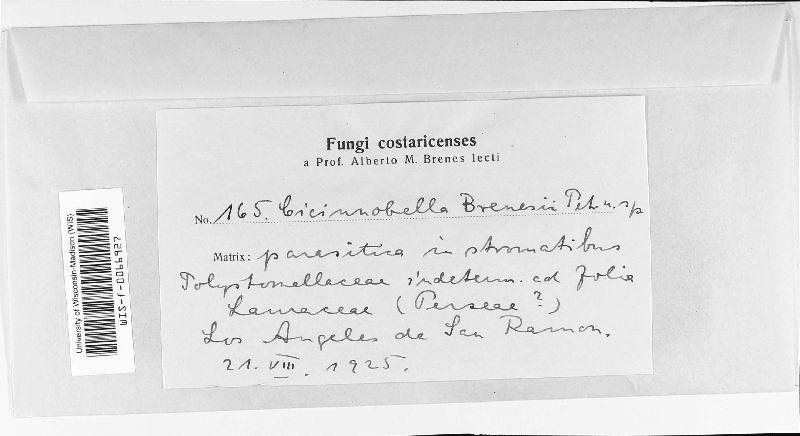 Fungi costaricenses
a Prof. Alberto M. Brenes lecti
No. 165. Cicinnobella Brenesii Pet. n. sp
Matrix: parasitica in stromatibus
Polystomellaceae indeterm. ad folia
Lauraceae (Perseae ?)
Los Angeles de San Ramon.
21. VIII. 1925.
University of Wisconsin-Madison (WIS)
WIS-f-0066927